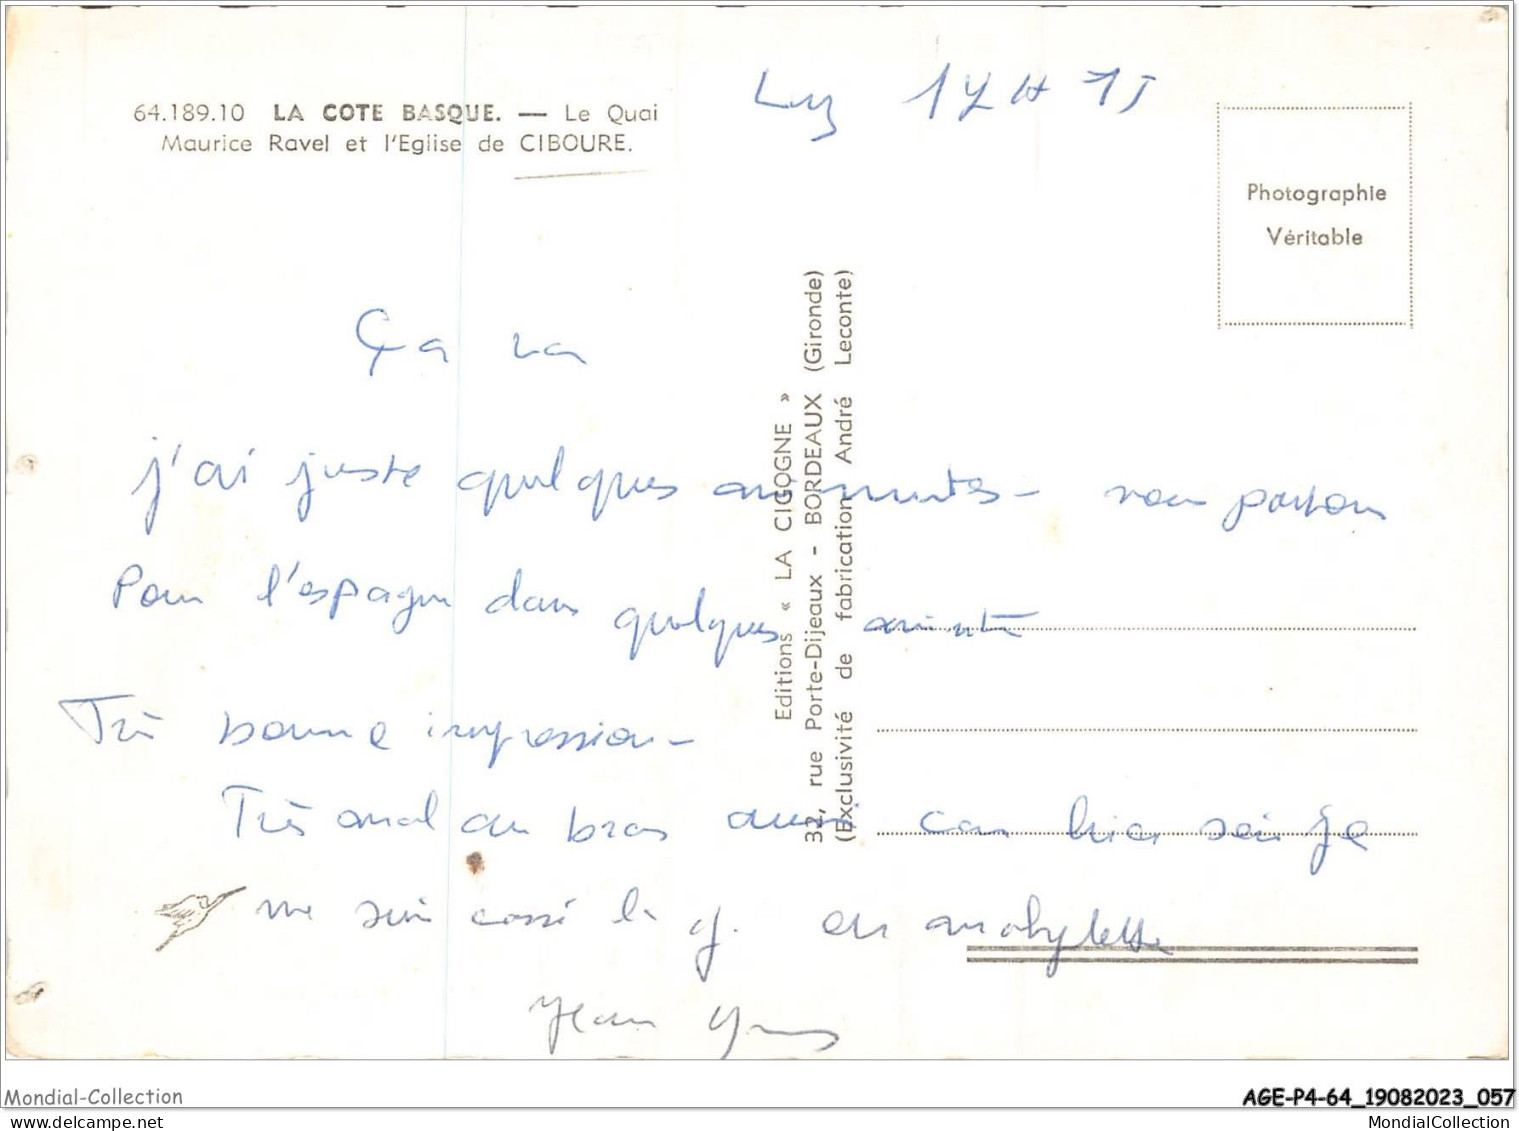 64.189.10 LA COTE BASQUE. — Le Quai
Maurice Ravel et l'Eglise de CIBOURE.
Luz 17 H 15
Photographie
Véritable
Ça va
j'ai juste quelques minutes - nous partons
Pour l'espagne dans quelques minutes
Très bonne impression -
Très mal au bras aussi car hier soir je
me suis cassé la g. en mobylette
Jean Yves
Editions « LA CIGOGNE »
32, rue Porte-Dijeaux - BORDEAUX (Gironde)
(Exclusivité de fabrication André Leconte)
Mondial-Collection
AGE-P4-64_19082023_057
MondialCollection